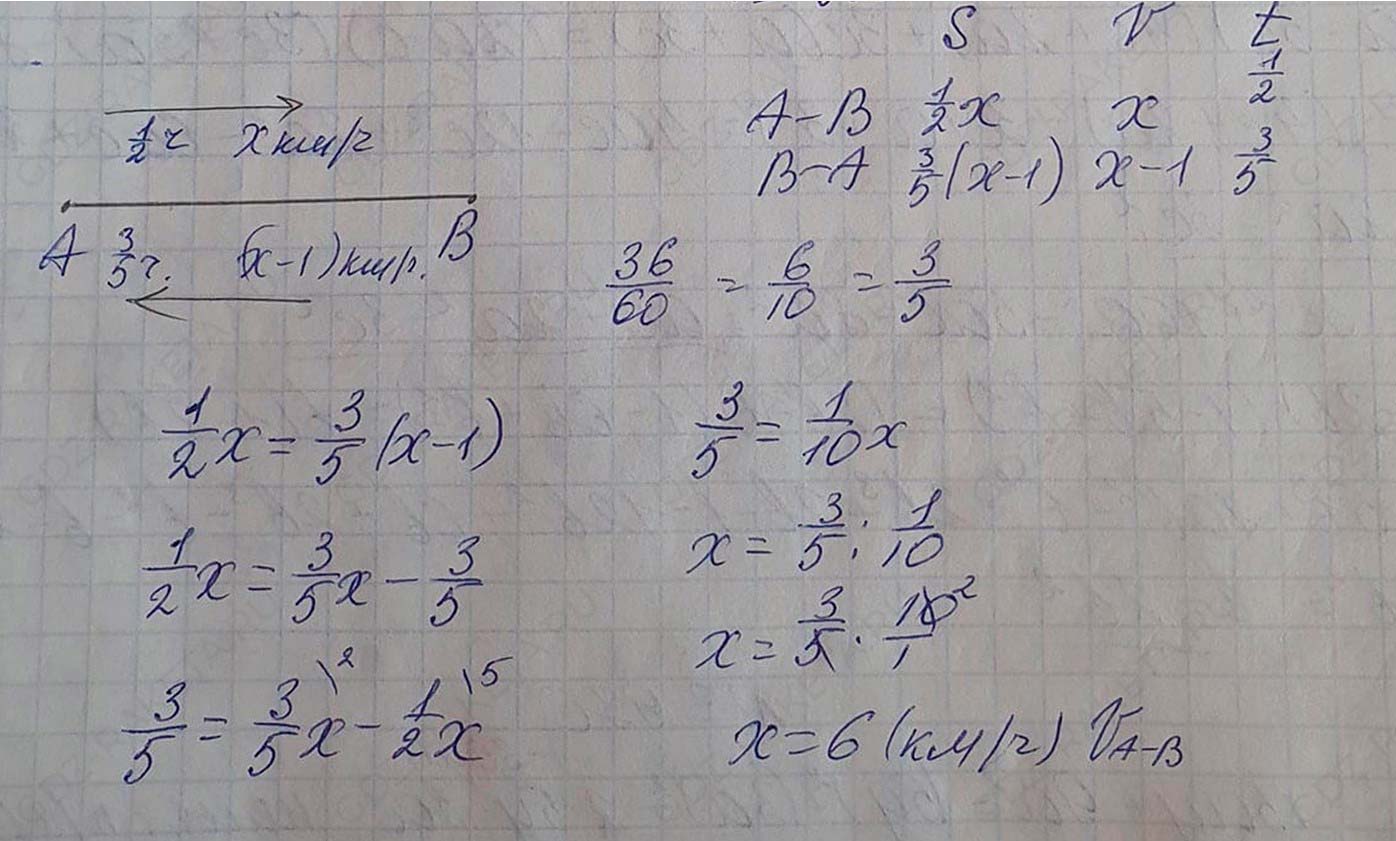 S V t
1/2 ч x км/ч
A 3/5 ч. (x-1) км/ч. B
A-B 1/2x x 1/2
B-A 3/5(x-1) x-1 3/5
36/60 = 6/10 = 3/5
1/2x = 3/5(x-1)
1/2x = 3/5x - 3/5
3/5 = 3/5x\2 - 1/2x\5
3/5 = 1/10x
x = 3/5 : 1/10
x = 3/5 · 10/1 2
x = 6 (км/ч) V A-B